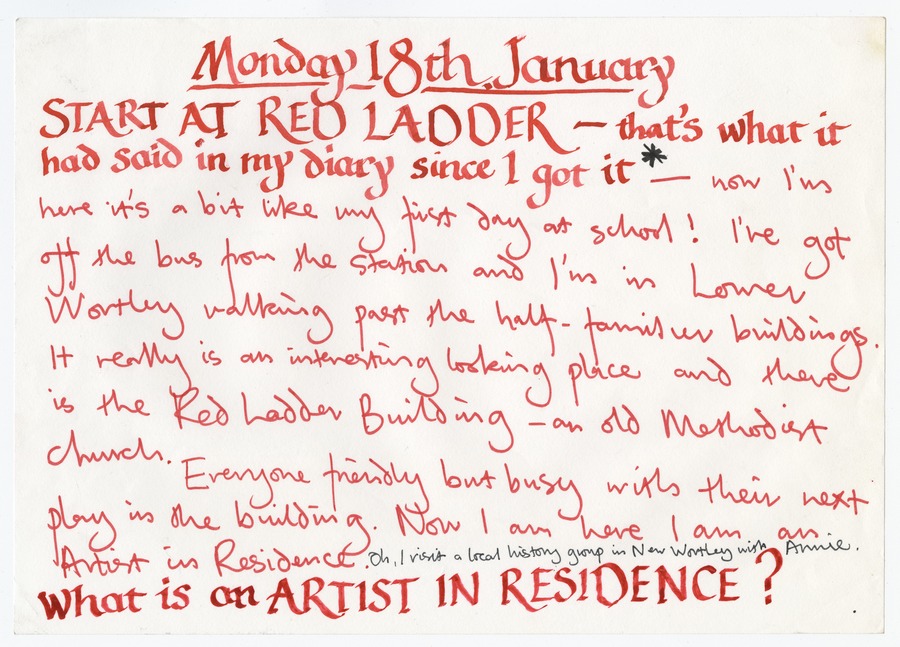 Monday 18th January
START AT RED LADDER – that's what it
had said in my diary since I got it * — now I'm
here it's a bit like my first day at school! I've got
off the bus from the station and I'm in Lower
Wortley walking past the half-familiar buildings.
It really is an interesting looking place and there
is the Red Ladder Building – an old Methodist
church.
Everyone friendly but busy with their next
play in the building. Now I am here I am an
Artist in Residence. Oh, I visit a local history group in New Wortley with Annie.
What is an ARTIST IN RESIDENCE?